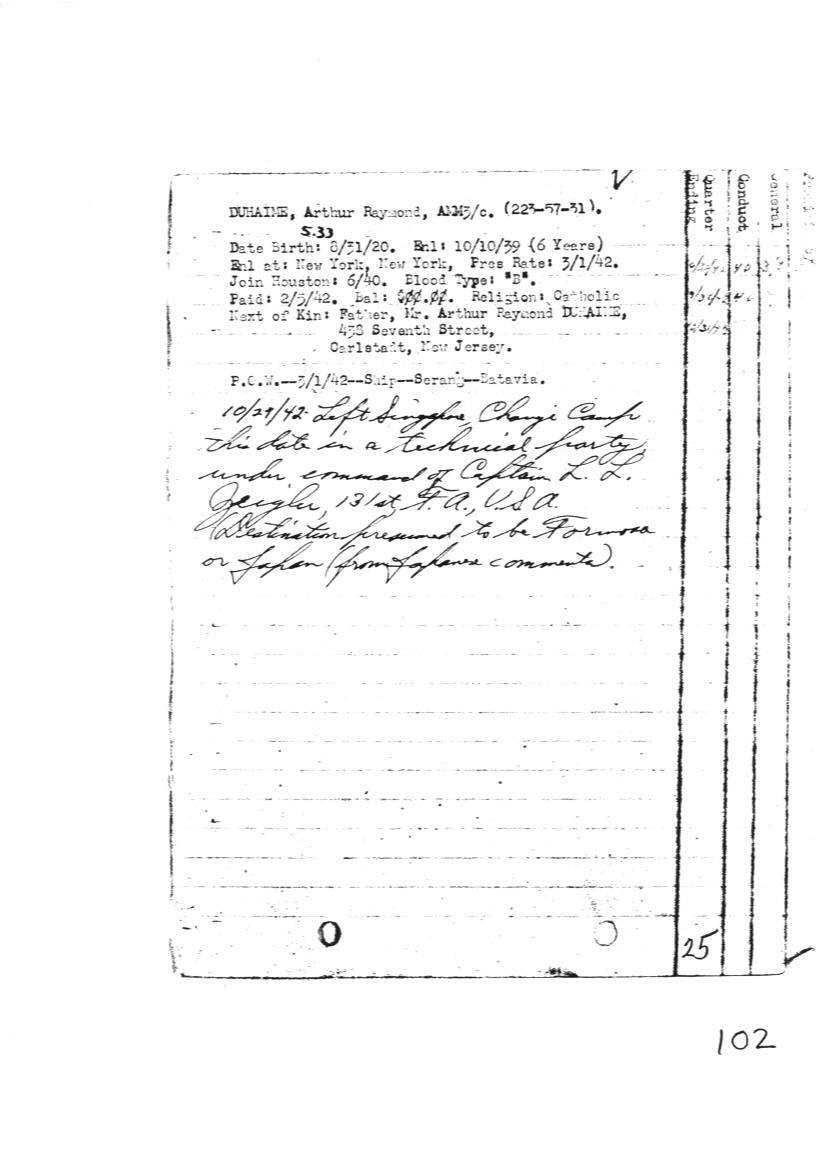 DUHAIME, Arthur Raymond, AMM3/c. (223-57-31).
5.33
Date Birth: 8/31/20. Enl: 10/10/39 (6 Years)
Enl at: New York, New York, Pres Rate: 3/1/42.
Join Houston: 6/40. Blood Type: "B".
Paid: 2/5/42. Bal: Religion: Catholic
Next of Kin: Father, Mr. Arthur Raymond DUHAIME,
438 Seventh Street,
Carlstadt, New Jersey.
P.O.W.--3/1/42--Ship--Serang--Batavia.
10/29/42 Left Singapore, Changi Camp
this date in a technical party,
under command of Captain L. L.
Zeigler, 131st, F.A., U.S.A.
(Destination presumed to be Formosa
or Japan (from Japanese comments).
Quarter
Ending
Conduct
General
25
102